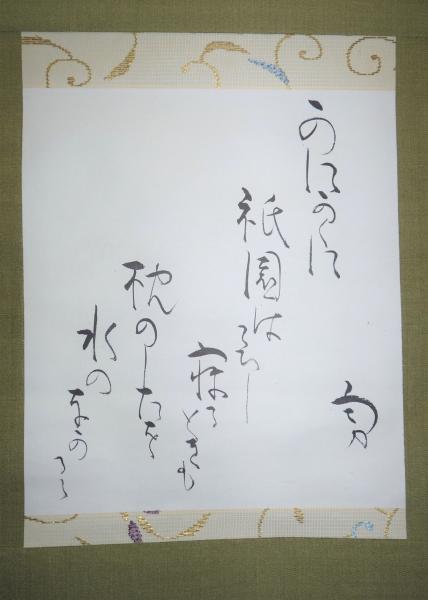 かにかくに
祇園はこひし
寝るときも
枕のしたを
水のなかるゝ
勇